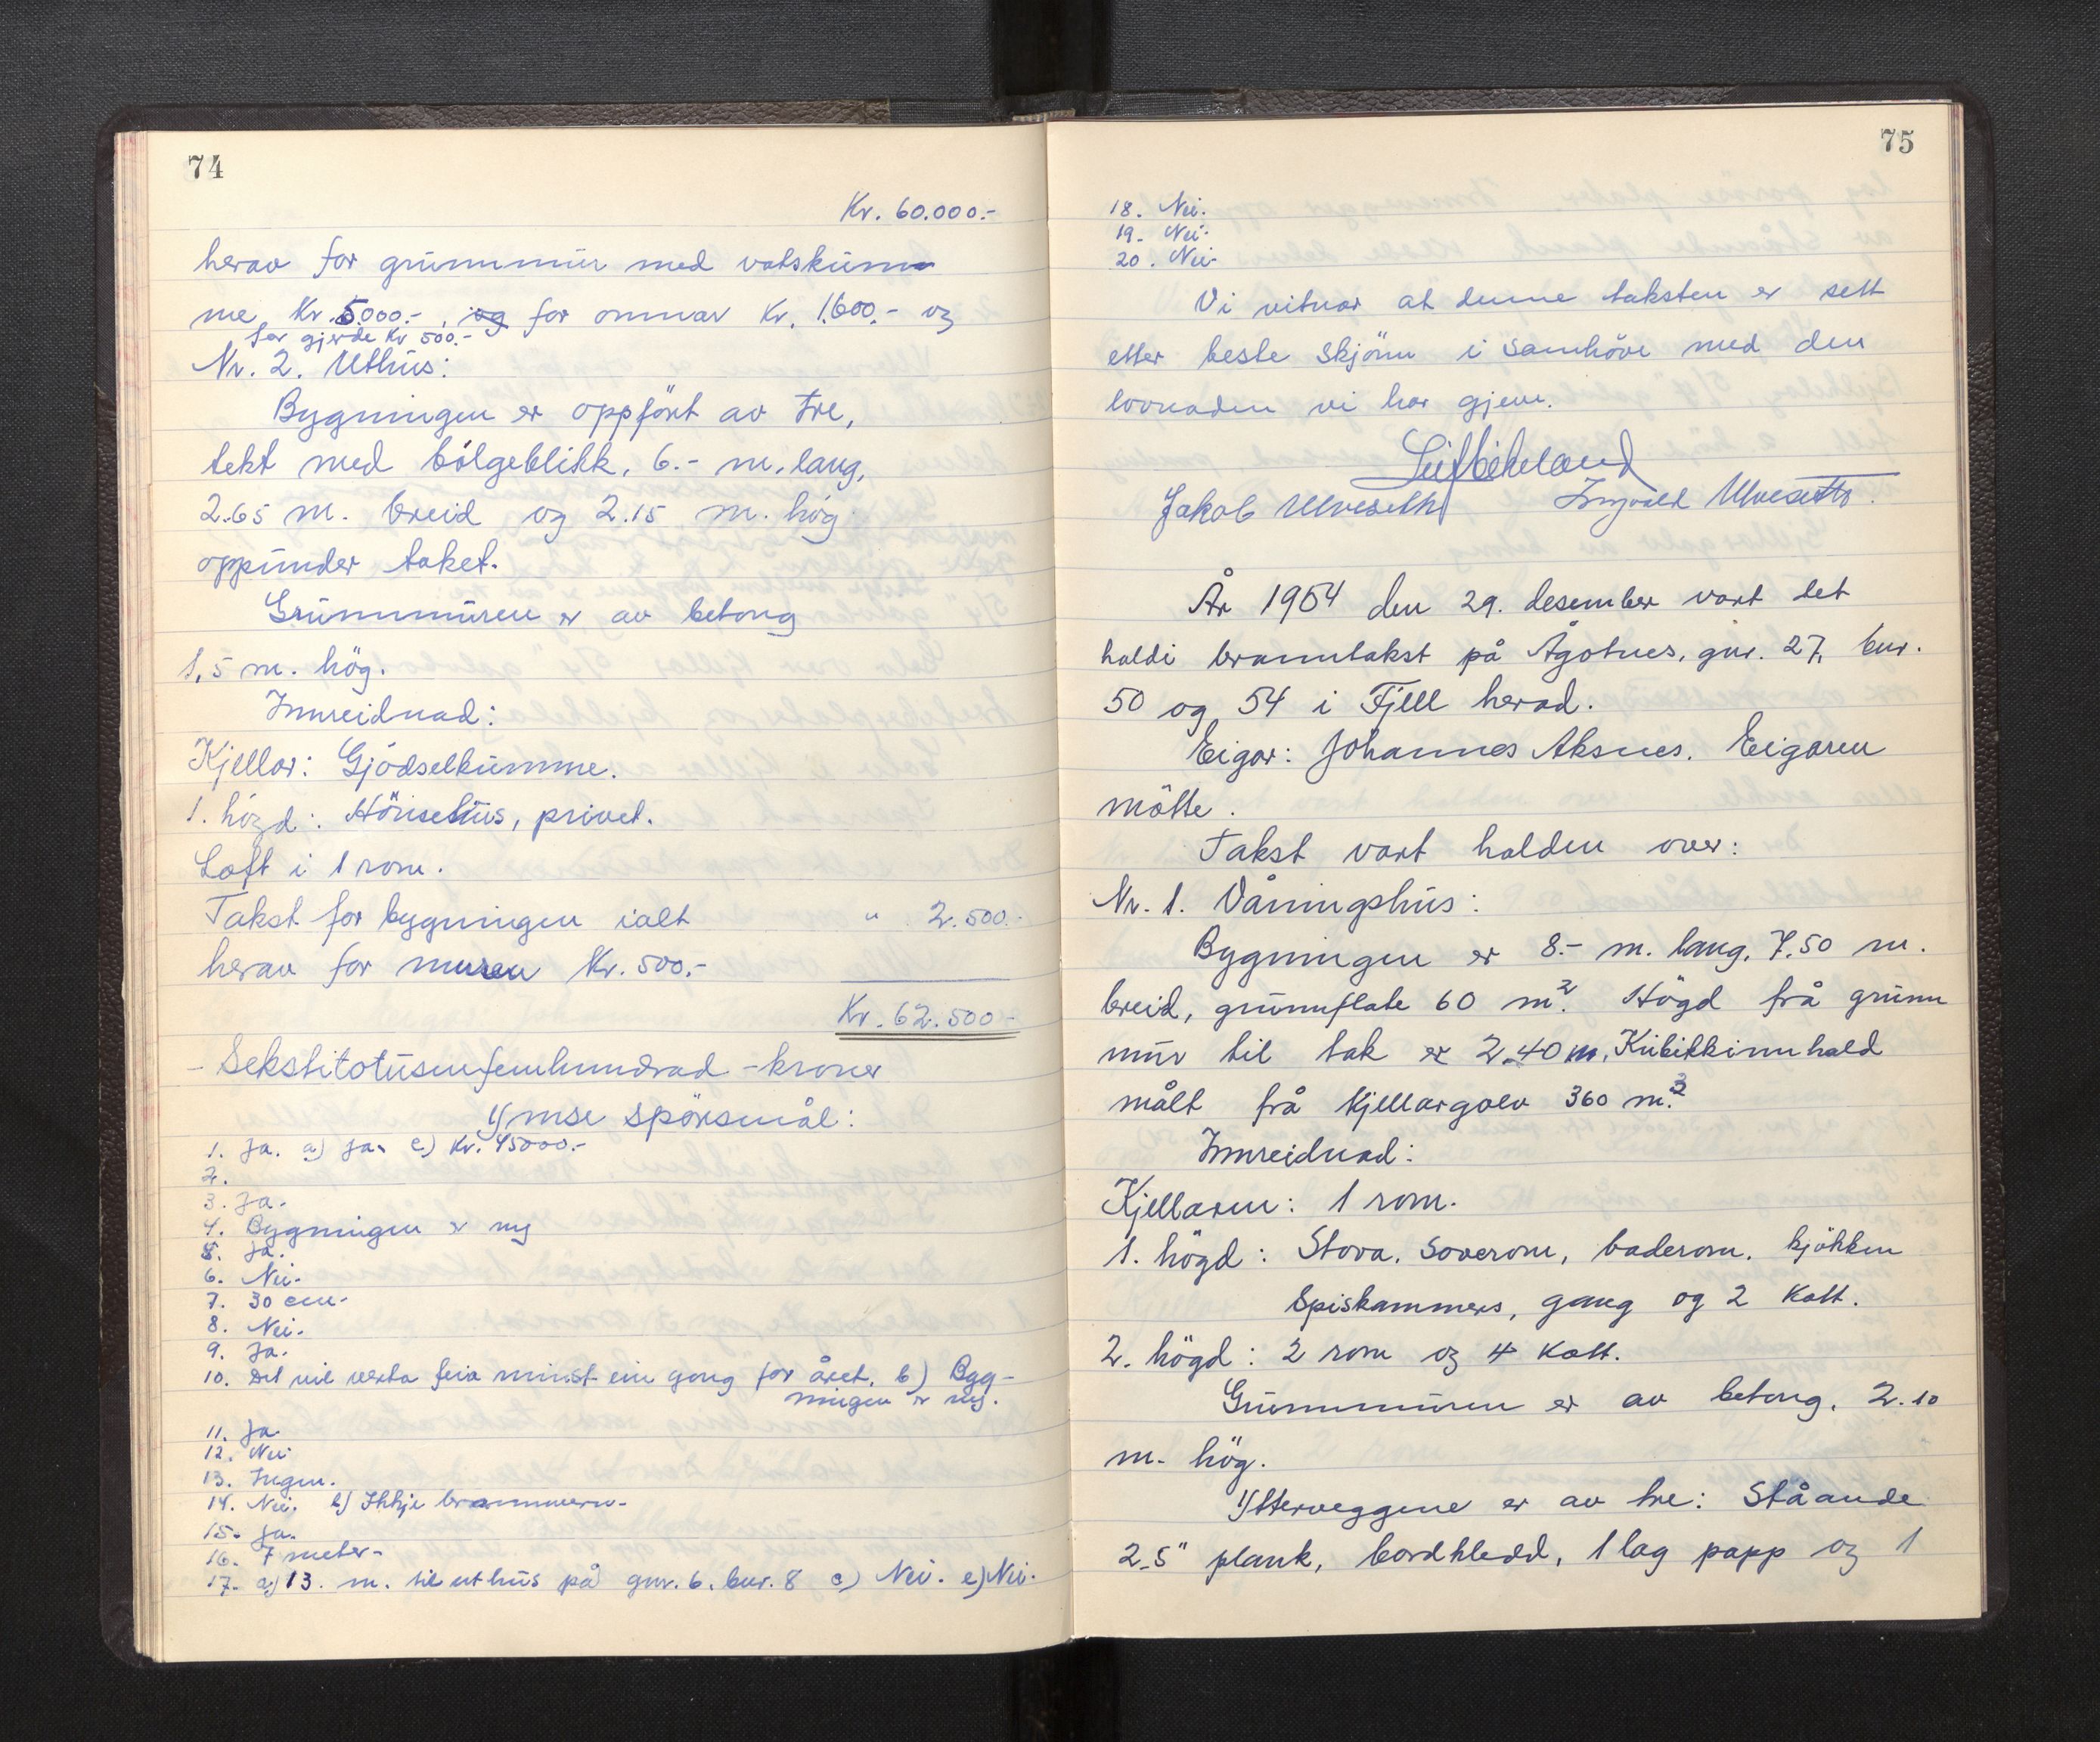 74
Kr. 60.000.-
herav for grunnmur med vatskum
me Kr. 5.000.-, og for omnar Kr. 1.600.- og
for gjerde Kr 500.-
Nr. 2. Uthus:
Bygningen er oppfört av tre,
tekt med bölgeblikk, 6.- m. lang,
2.65 m. breid og 2.15 m. hög
oppunder taket.
Grunnmuren er av betong
1,5 m. hög.
Innreidnad:
Kjellar: Gjödselkumme.
1. högd: Hönsehus, privet.
Loft i 1 rom.
Takst for bygningen ialt " 2.500.-
herav for muren Kr. 500.-
Kr. 62.500.-
- Sekstitotusenfemhundrad - kroner
Ymse spörsmål:
1. Ja. a) Ja. c) Kr. 45000.-
2.
3. Ja.
4. Bygningen er ny
5. Ja.
6. Nei.
7. 30 cm.
8. Nei.
9. Ja.
10. Det vil verta feia minst ein gong for året. b) Byg-
ningen er ny.
11. Ja.
12. Nei
13. Ingen.
14. Nei. b) Ikkje brannvern.
15. Ja.
16. 7 meter.
17. a) 13. m. til uthus på gnr. 6. bnr. 8 c) Nei. e) Nei.
75
18. Nei.
19. Nei.
20. Nei.
Vi vitnar at denne taksten er sett
etter beste skjönn i samhöve med den
lovnaden vi har gjeve.
Jakob Ulveseth Ingvald Ulvesetth.
År 1954 den 29. desember vart det
haldi branntakst på Ågotnes, gnr. 27, bnr.
50 og 54 i Fjell herad.
Eigar: Johannes Aksnes. Eigaren
mötte.
Takst vart halden over:
Nr. 1. Våningshus:
Bygningen er 8.- m. lang, 7.50 m.
breid, grunnflate 60 m². Högd frå grunn
mur til tak er 2.40 m. Kubikkinnhald
målt frå kjellargolv 360 m.³
Innreidnad:
Kjellaren: 1 rom.
1. högd: Stova, soverom, baderom, kjökken
Spiskammers, gang og 2 Kott.
2. högd: 2 rom og 4 Kott.
Grunnmuren er av betong, 2.10
m. hög.
Ytterveggene er av tre: Ståande
2.5" plank, bordkledd, 1 lag papp og 1